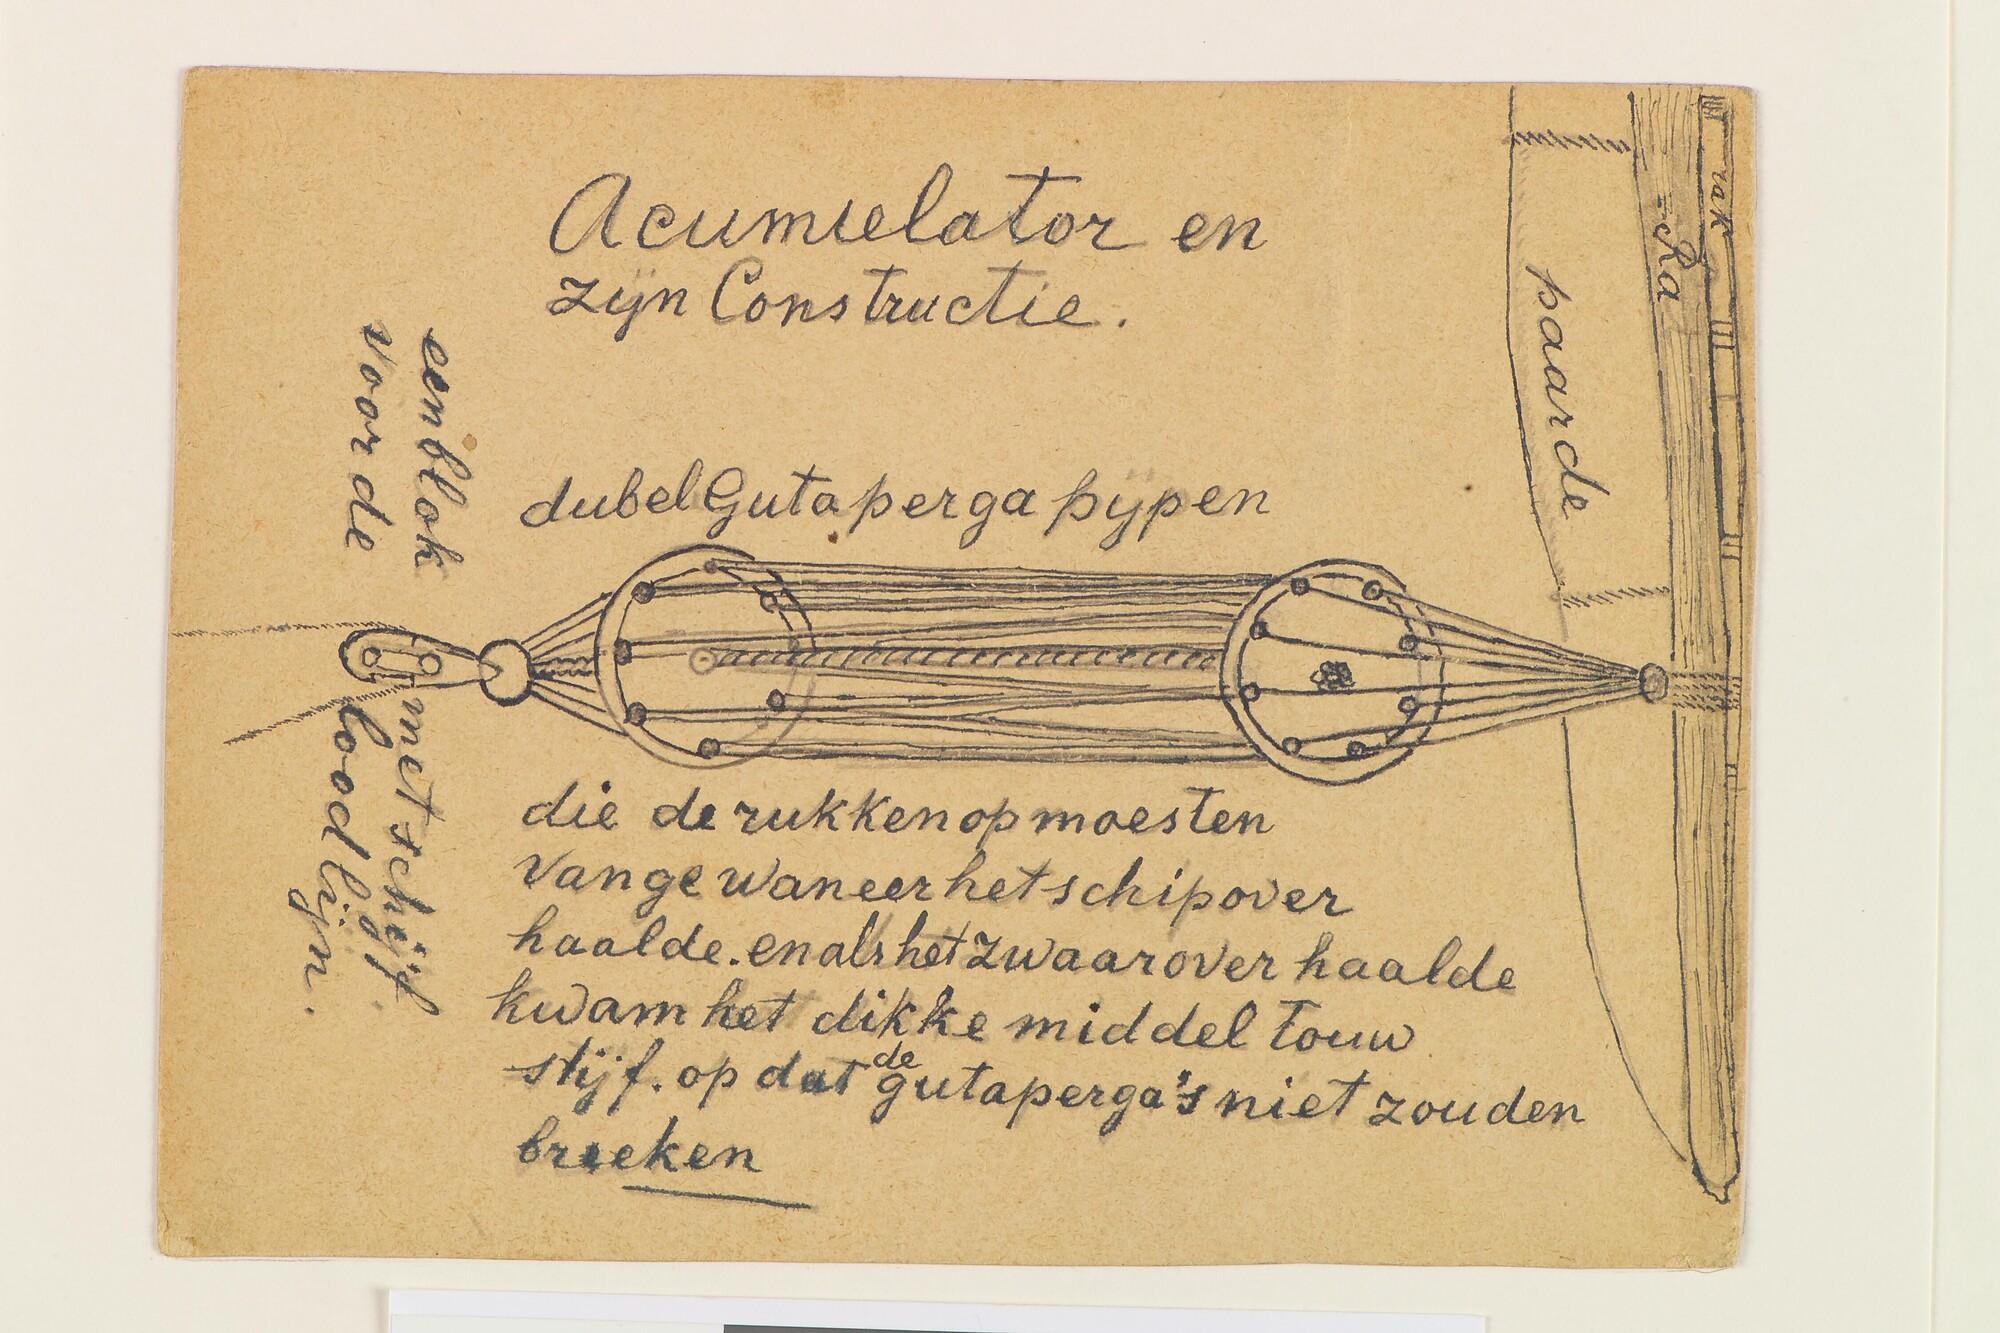 Acumulator en
zijn Constructie.
dubel Gutaperga pijpen
die de rukken op moesten
vange waneer het schip over
haalde. en als het zwaar over haalde
kwam het dikke middel touw
stijf. op dat de gutaperga's niet zouden
breeken
een blok met schijf
voor de loodlijn.
paarde
Ra
rak